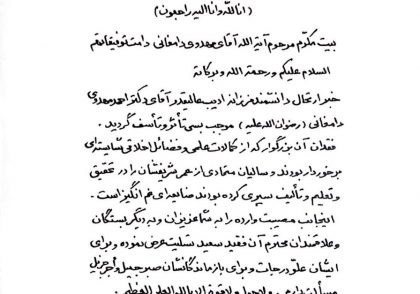 (انا لله و انا الیه راجعون)
بیت مکرّم مرحوم آیة الله آقای مهدوی دامغانی دامت توفیقاتهم
السلام علیکم و رحمة الله و برکاته
خبر ارتحال دانشمند فرزانه ادیب عالیقدر آقای دکتر احمد مهدوی
دامغانی (رضوان الله علیه) موجب بسی تأثر و تأسف گردید.
فقدان آن بزرگوار که از کمالات علمی و فضائل اخلاقی شایسته‌ای
برخوردار بودند و سالیان متمادی از عمر شریفشان را در تحقیق
و تعلیم و تألیف سپری کرده بودند ضایعه‌ای غم انگیز است.
اینجانب مصیبت وارده را به شما عزیزان و به دیگر بستگان
و علاقمندان محترم آن فقید سعید تسلیت عرض نموده و برای
ایشان علوّ درجات و برای بازماندگانشان صبر جمیل و أجر جزیل
مسألت دارم. و لا حول و لا قوة الا بالله العلی العظیم.